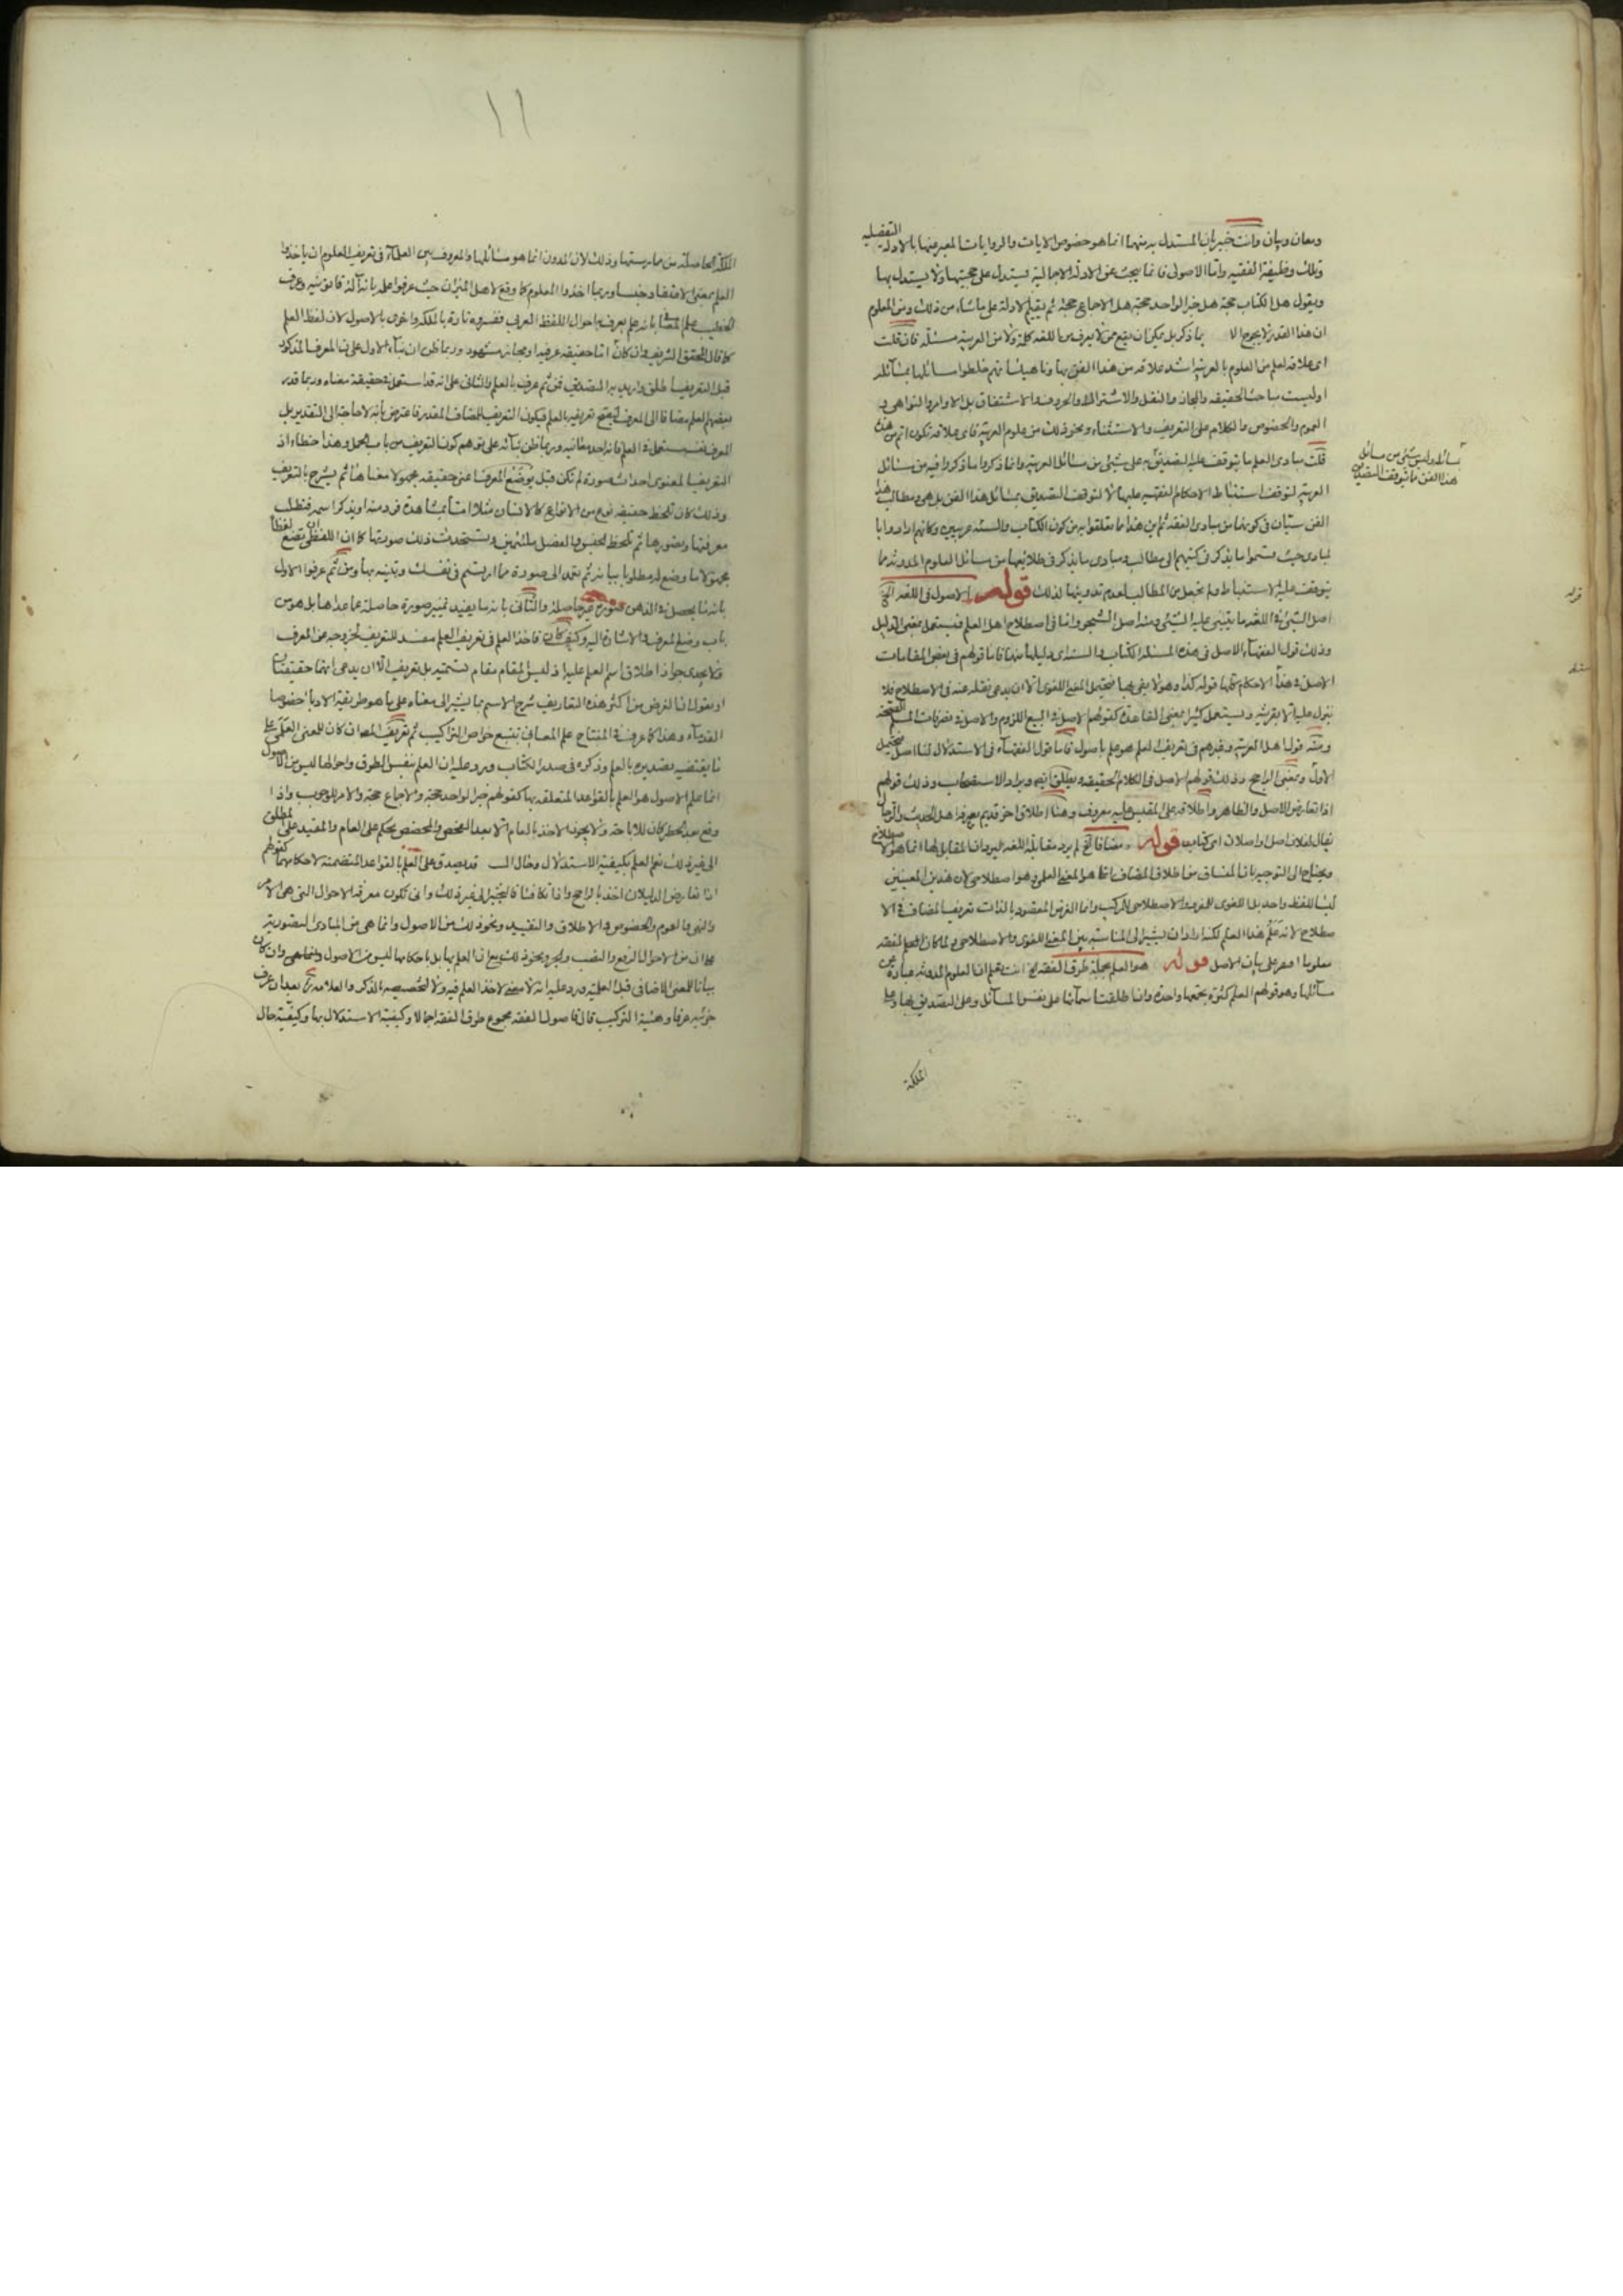 ومعان وبيان وانت خبير بان المستدل به منهما انما هو خصوص الايات والروايات المعبر عنها بالادلة التفصيلية
وتلك وظيفة الفقيه واما الاصولى فانما يبحث عن الادلة الاجمالية ليستدل على حجيتها ولا يستدل بها
ويقول هل الكتاب حجة هل خبر الواحد حجة هل الاجماع حجة ثم يقيم الادلة على ما شاء من ذلك ومن المعلوم
ان هذا القدر لا يحوج الا بما ذكر بل يمكن ان يقع ممن لا يعرف من اللغة كلمة ولا من العربية مسئلة فان قلت
اى علاقة لعلم من العلوم بالعربية اشد علاقة من هذا الفن بها وناهيك انهم خلطوا مسائلها بمسائله
اوليست مباحث الحقيقة والمجاز والنقل والاشتراك والحروف والاشتقاق بل الاوامر والنواهى و
العموم والخصوص والكلام على التعريف والاستثناء ونحو ذلك من علوم العربية فاى علاقة تكون اتم من هذه
قلت مبادى العلم ما يتوقف عليه التصديق على شيئ من مسائل العربية وانما ذكروا ما ذكروا فيه من مسائل
بمسائله وليس شيئ من مسائل
هذا الفن ما يتوقف التصديق
العربية لتوقف استنباط الاحكام الفقهية عليها لا لتوقف التصديق بمسائل هذا الفن بل هى ومطالب هذا
الفن سيان فى كونهما من مبادى الفقه ثم اين هذا مما تعلقوا به من كون الكتاب والسنة عربيين وكانهم ارادوا با
لمبادى حيث قسموا ما يذكر فى كتبهم الى مطالب ومبادى ما يذكر فى طلايعها من مسائل العلوم المدونة مما
يتوقف عليه الاستنباط ولم يجعل من المطالب لعدم تدوينها لذلك قوله الاصول فى اللغة الخ
اصل الشيئ فى اللغة ما يبتنى عليه الشيئ ومنه اصل الشجر واما فى اصطلاح اهل العلم فيستعمل بمعنى الدليل
وذلك قول الفقهاء الاصل فى هذه المسئلة الكتاب والسنة اى دليلها منهما فاما قولهم فى بعض المقامات
الاصل فى هذا الاحكام كلها قوله كذا وهو لا يفى بها فيحتمل المعنى اللغوى الا ان يدعى نقله عنه فى الاصطلاح فلا
ينزل عليه الا بقرينة ويستعمل كثيرا بمعنى القاعدة كقولهم الاصل فى البيع اللزوم والاصل فى تصرفات المسلم الصحة
ومنه قول اهل العربية وغيرهم فى تعريف العلم هو علم باصول فاما قول الفقهاء فى الاستدلال لنا اصل فيحتمل
الاول وبمعنى الراجح وذلك قولهم الاصل فى الكلام الحقيقة ويطلق ايضا ويراد الاستصحاب وذلك قولهم
اذا تعارض الاصل والظاهر واطلاقه على المقيس عليه معروف وهنا اطلاق اخر قديم يعرفه اهل الحديث والرجال
يقال لفلان اصل واصلان اى كتاب قوله مضافا الخ لم يرد مقابلة اللغة ليرد ان المقابل لها انما هو الاصطلاح
ويحتاج الى التوجيه بان المنساق من اطلاق المضاف انما هو المعنى العلمى وهو اصطلاحى لان هذين المعنيين
ليسا للفظ واحد بل اللغوى للمفرد والاصطلاحى للمركب وانما الغرض المقصود بالذات تعريف المضاف فى الا
صطلاح لانه علم هذا العلم لكنه اراد ان يشير الى المناسبة بين المعنى اللغوى والاصطلاحى ولما كان العلم لفقه
معلوما اقتصر على بيان الاصل قوله هو العلم بجملة طرق الفقه الخ انت تعلم ان العلوم المدونة عبارة عن
مسائلها وهو قولهم العلم كثرة يجمعها واحدة وانما طلقت اسمائها على نفس المسائل وعلى التصديق بها وعلى
الملكة
١١
الملكة الحاصلة من ممارستها وذلك لان المدون انما هو مسائلها والمعروف بين العلماء فى تعريف العلوم ان ياخذوا
العلم بمعنى الاعتقاد جنسا وربما اخذوا المعلوم كما وقع لاهل الميزان حيث عرفوا علمه بانه آلة قانونية وعرف
الخطيب علم المعانى بانه علم يعرف به احوال اللفظ العربى ففسروه تارة بالملكة واخرى بالاصول لان لفظ العلم
كما قال المحقق الشريف وان كان اما حقيقة عرفية او مجاز مشهور وربما ظن ان بناء الاول على ان المعرف المذكور
قبل التعريف اطلق واريد به التصديق فمن ثم عرف بالعلم والثانى على انه قد استعمل فى حقيقة معناه وربما قدر
بعضهم العلم مضافا الى المعرف ليصح تعريفه بالعلم فيكون التعريف للمضاف المقدر فاعترض بانه لا حاجة الى التقدير بل
المعرف نفسه يستعمل فى العلم فانه احد معانيه وربما ظن بنائه على توهم كون التعريف من باب الحمل وهذا خطاء اذ
التعريف المعنوى احداث صورة لم تكن قبل يوضع المعرف عن حقيقة مجهولا معناها ثم يشرح بالتعريف
وذلك كان تلحظ حقيقة نوع من الانواع كالانسان مثلا اما بمشاهدة فرد منه او بذكر اسمه فتطلب
معرفتها وتصورها ثم تلحظ الجنس والفصل ملتئمين وتستحدث بذلك صورتها كما ان اللفظى تضع لفظا
مجهولا ما وضع له مطلوبا بيانه ثم تعمد الى صورة مما ارتسم فى نفسك وتبينه بها ومن ثم عرفوا الاول
بانه ما يحصل فى الذهن صورة غير حاصلة والثانى بانه ما يفيد تمييز صورة حاصلة عما عداها بل هو من
باب وضع المعرف والاشارة اليه وكيف كان فاخذ العلم فى تعريف العلم مفسد للتعريف لخروجه عن المعرف
فلا يجدى جواز اطلاق اسم العلم عليه اذ ليس المقام مقام تسمية بل تعريف الا ان يدعى انهما حقيقتان
او يقول ان الغرض من اكثر هذه التعاريف شرح الاسم بما يشير الى معناه على ما هو طريقة الادباء خصوصا
القدماء وهذا كما عرف فى المفتاح علم المعانى بتتبع خواص التراكيب ثم تعريف المص ان كان للمعنى العلمى على
ما يقتضيه تصديره بالعلم وذكره فى صدر الكتاب ورد عليه ان العلم بنفس الطرق واحوالها ليس من الاصول
انما علم الاصول هو العلم بالقواعد المتعلقة بها كقولهم خبر الواحد حجة والاجماع حجة والامر للوجوب واذا
وقع بعد الحظر كان للاباحة ولا يجوز الاخذ بالعام الا بعد الفحص والمخصص يحكم على العام والمقيد على المطلق
الى غير ذلك نعم العلم بكيفية الاستدلال وحال المس قد يصدق على العلم بالقواعد المتضمنة لاحكامهما كقولهم
اذا تعارض الدليلان اخذ بالراجح واذا تكافئا فالتخيير الى غير ذلك وانى تكون معرفة الاحوال التى هى الامر
والنهى والعموم والخصوص والاطلاق والتقييد ونحو ذلك من الاصول وانما هى من المبادى التصورية
كما ان من الاحوال الرفع والنصب والجر ونحو ذلك مع ان العلم بها بل باحكامها ليس من الاصول وان كان
بيانا للمعنى الاضافى قبل العلمية ورد عليه انه لا معنى لاخذ العلم فيه ولا لتخصيصه بالذكر والعلامة بعد ان عرف
جزئيه عرفا وهيئة التركيب قال فاصول الفقه مجموع طرق الفقه اجمالا وكيفية الاستدلال بها وكيفية حال